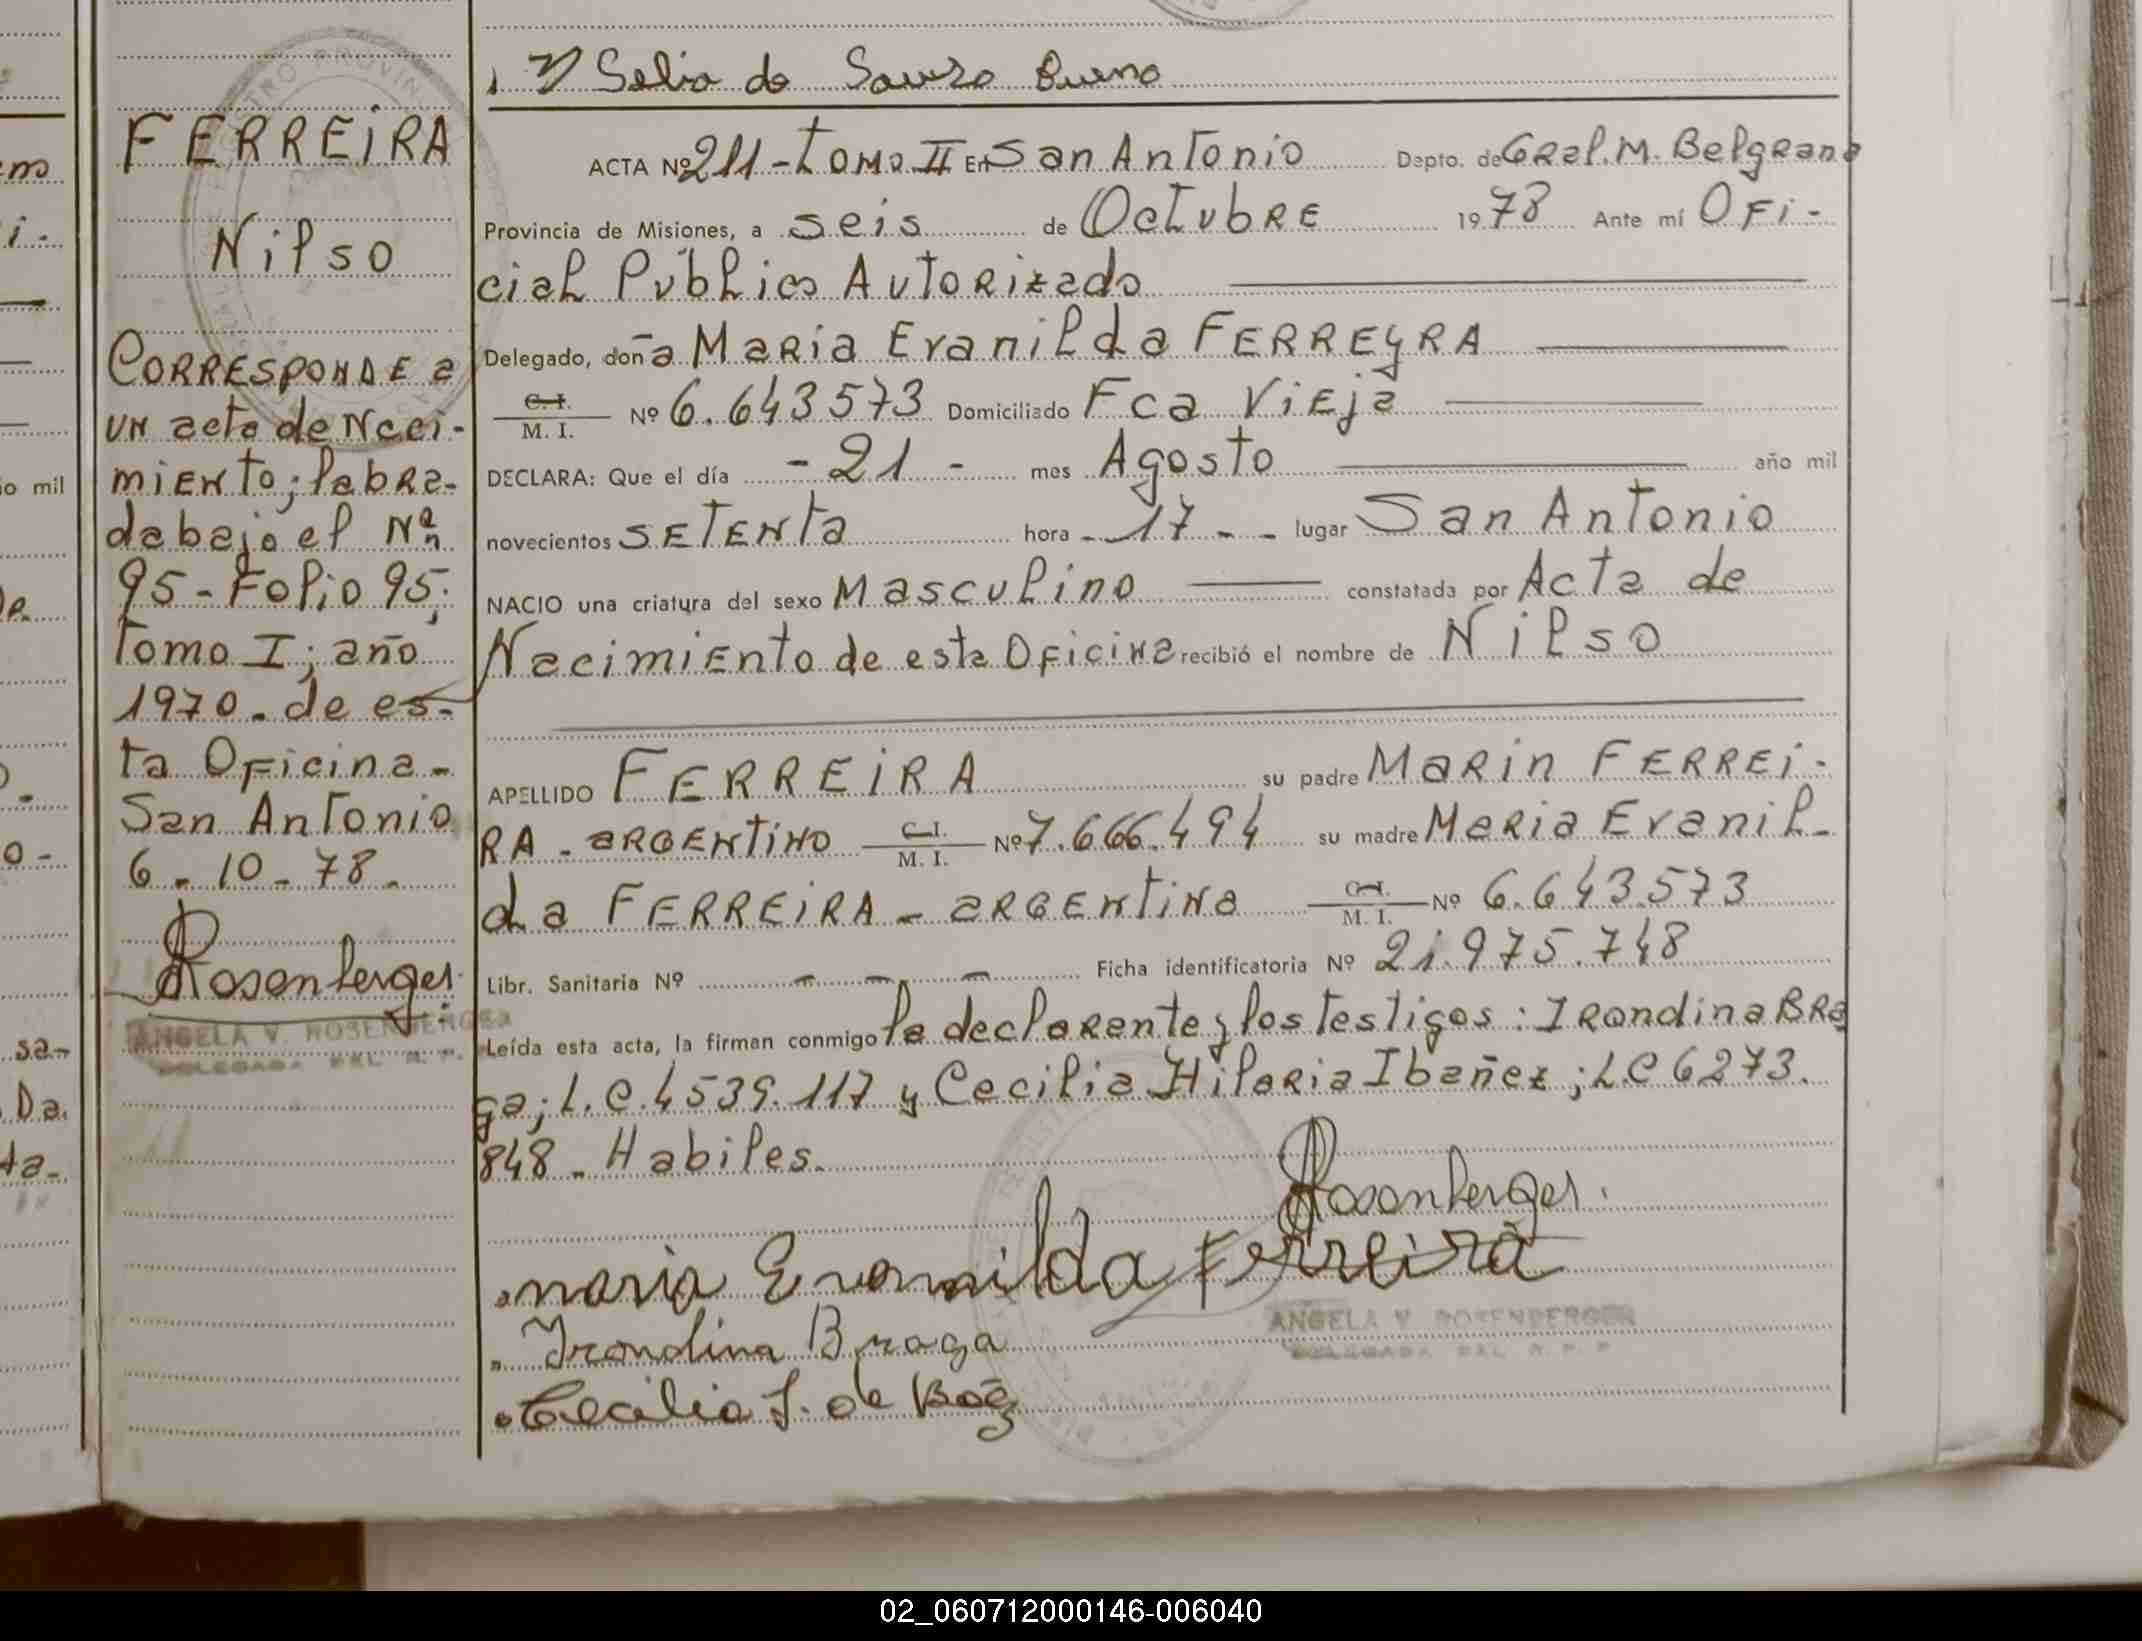 Selia de Souza Bueno
FERREIRA
Nilso
CORRESPONDE a
un acta de Naci-
miento; labra-
da bajo el Nº
95-Folio 95;
Tomo I; año
1970. de es-
ta Oficina-
San Antonio
6-10-78-
Rosenberger
ANGELA V. ROSENBERGER
DELEGADA DEL R. P.
ACTA Nº 211-Tomo II En San Antonio Depto. de Gral. M. Belgrano
Provincia de Misiones, a seis de Octubre 1978 Ante mí Ofi-
cial Público Autorizado
Delegado, doña Maria Evanilda FERREYRA
C. I.
M. I. Nº 6.643573 Domiciliado Fca Vieja
DECLARA: Que el día -21- mes Agosto año mil
novecientos SETENTA hora -17-- lugar San Antonio
NACIO una criatura del sexo Masculino constatada por Acta de
Nacimiento de esta Oficina recibió el nombre de Nilso
APELLIDO FERREIRA su padre Marin FERREI-
RA - argentino C. I. M. I. Nº 7.666.494 su madre Maria Evanil-
da FERREIRA - argentina C. I. M. I. Nº 6.643.573
Libr. Sanitaria Nº - - - Ficha identificatoria Nº 21.975.748
Leída esta acta, la firman conmigo la declarante y los testigos: Irondina Bra
ga; L.C.4539.117 y Cecilia Hilaria Ibañez; L.C 6273.
848. Habiles.
Rosenberger
maria Evanilda Ferreira
ANGELA V. ROSENBERGER
DELEGADA DEL R. P.
Irondina Braga
Cecilia I. de Báez
io mil
sa-
Da.
ta-
02_060712000146-006040